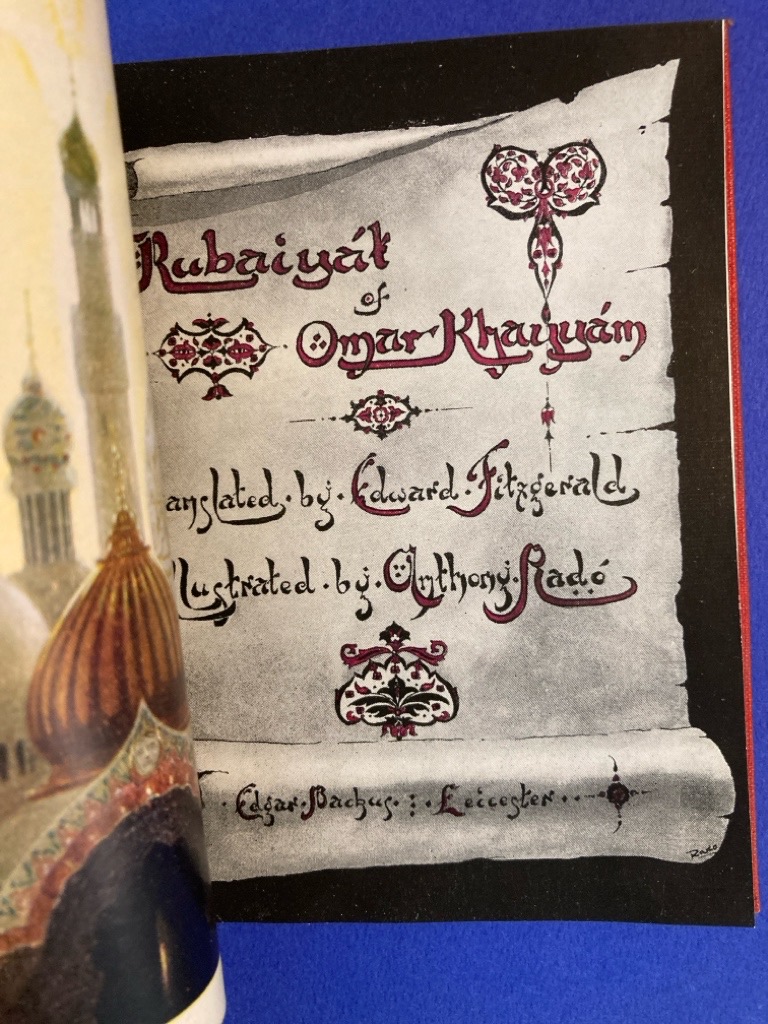 Rubaiyát
of
Omar Khayyám
anslated · by · Edward · Fitzgerald
llustrated · by · Anthony · Radó
· Edgar · Backus · : · Leicester · ·
Rado